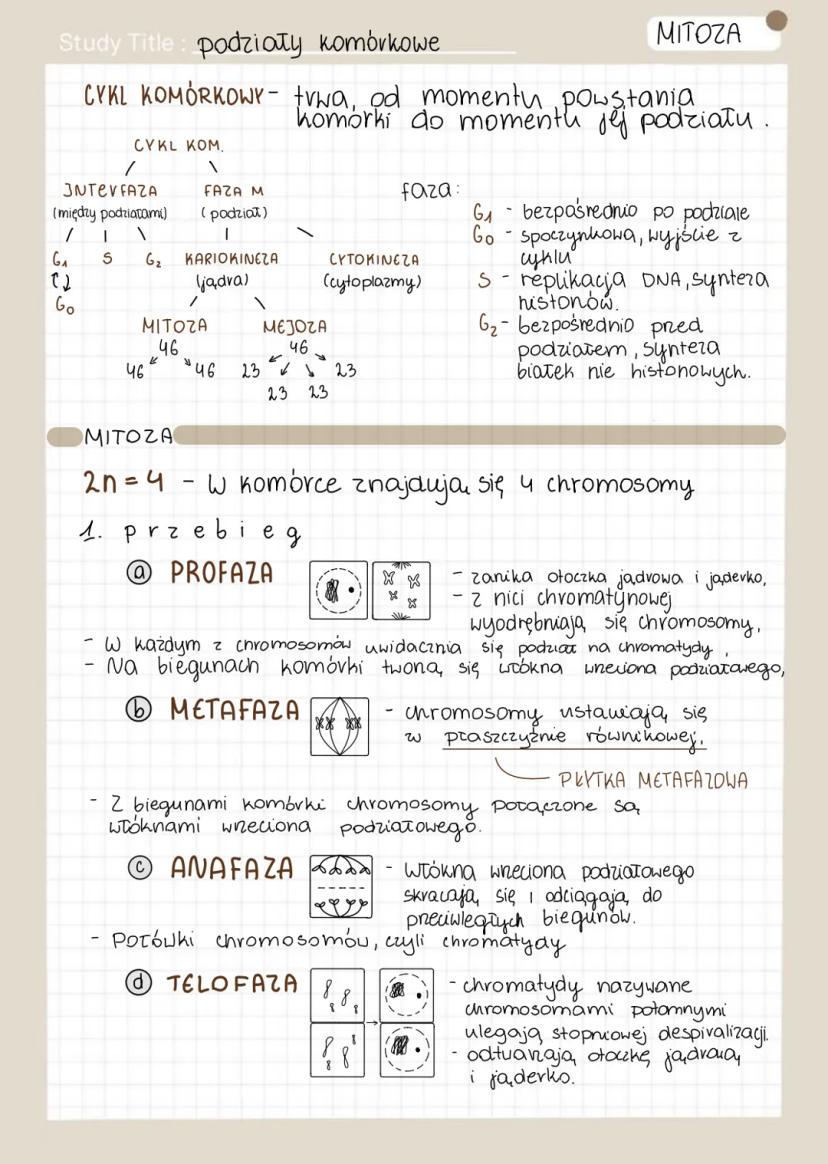 Study Title : podziały komórkowe
MITOZA
CYKL KOMÓRKOWY - trwa, od momentu powstania
komórki do momentu jej podziału.
CYKL KOM.
INTERFAZA FAZA M
(między podziałami) (podział)
G1 S G2 KARIOKINEZA CYTOKINEZA
(jądra) (cytoplazmy)
G0
MITOZA MEJOZA
46 46
46 46 23 23
23 23
faza:
G1 - bezpośrednio po podziale
G0 - spoczynkowa, wyjście z
cyklu
S - replikacja DNA, synteza
histonów.
G2 - bezpośrednio przed
podziałem, synteza
białek nie histonowych.
MITOZA
2n = 4 - w komórce znajdują się 4 chromosomy
1. przebieg
a PROFAZA
- zanika otoczka jądrowa i jąderko,
- z nici chromatynowej
wyodrębniają się chromosomy,
- W każdym z chromosomów uwidacznia się podział na chromatydy,
- Na biegunach komórki tworzą się włókna wrzeciona podziałowego,
b METAFAZA
- chromosomy ustawiają się
w płaszczyźnie równikowej.
PŁYTKA METAFAZOWA
- Z biegunami komórki chromosomy połączone są
włóknami wrzeciona podziałowego.
c ANAFAZA
- Włókna wrzeciona podziałowego
skracają się i odciągają do
przeciwległych biegunów.
- Połówki chromosomów, czyli chromatydy
d TELOFAZA
- chromatydy nazywane
chromosomami potomnymi
ulegają stopniowej despiralizacji.
- odtwarzają otoczkę jądrową
i jąderko.